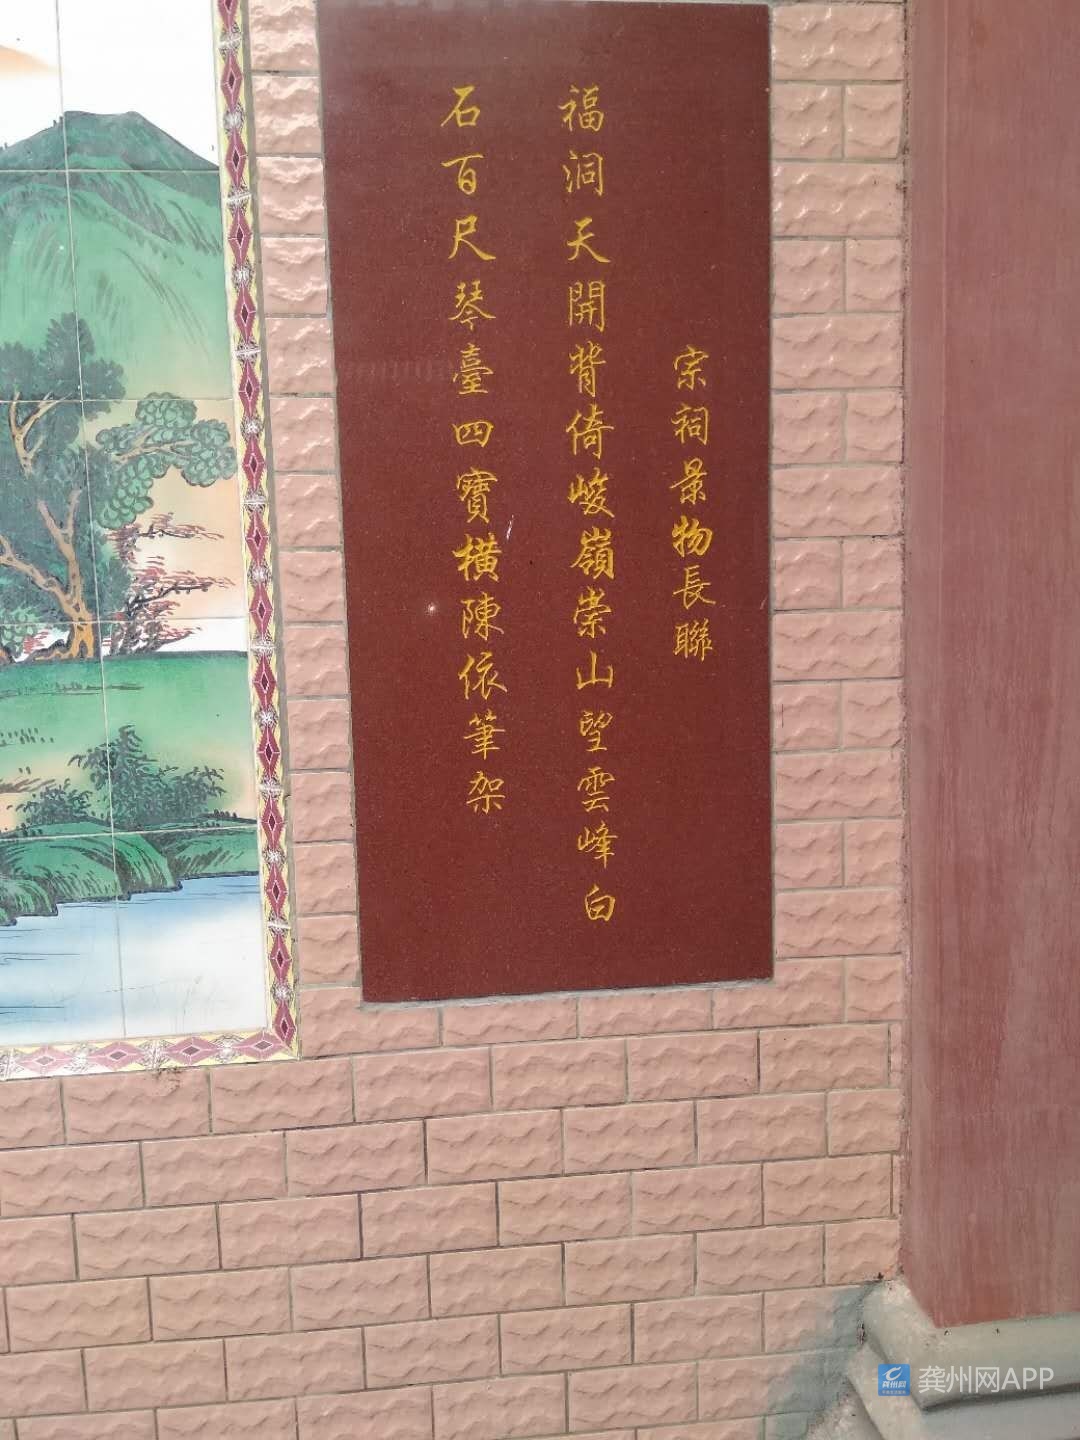 宗祠景物長聯
福洞天開背倚峻嶺崇山望雲峰白
石百尺琴臺四寶橫陳依筆架
龚州网APP